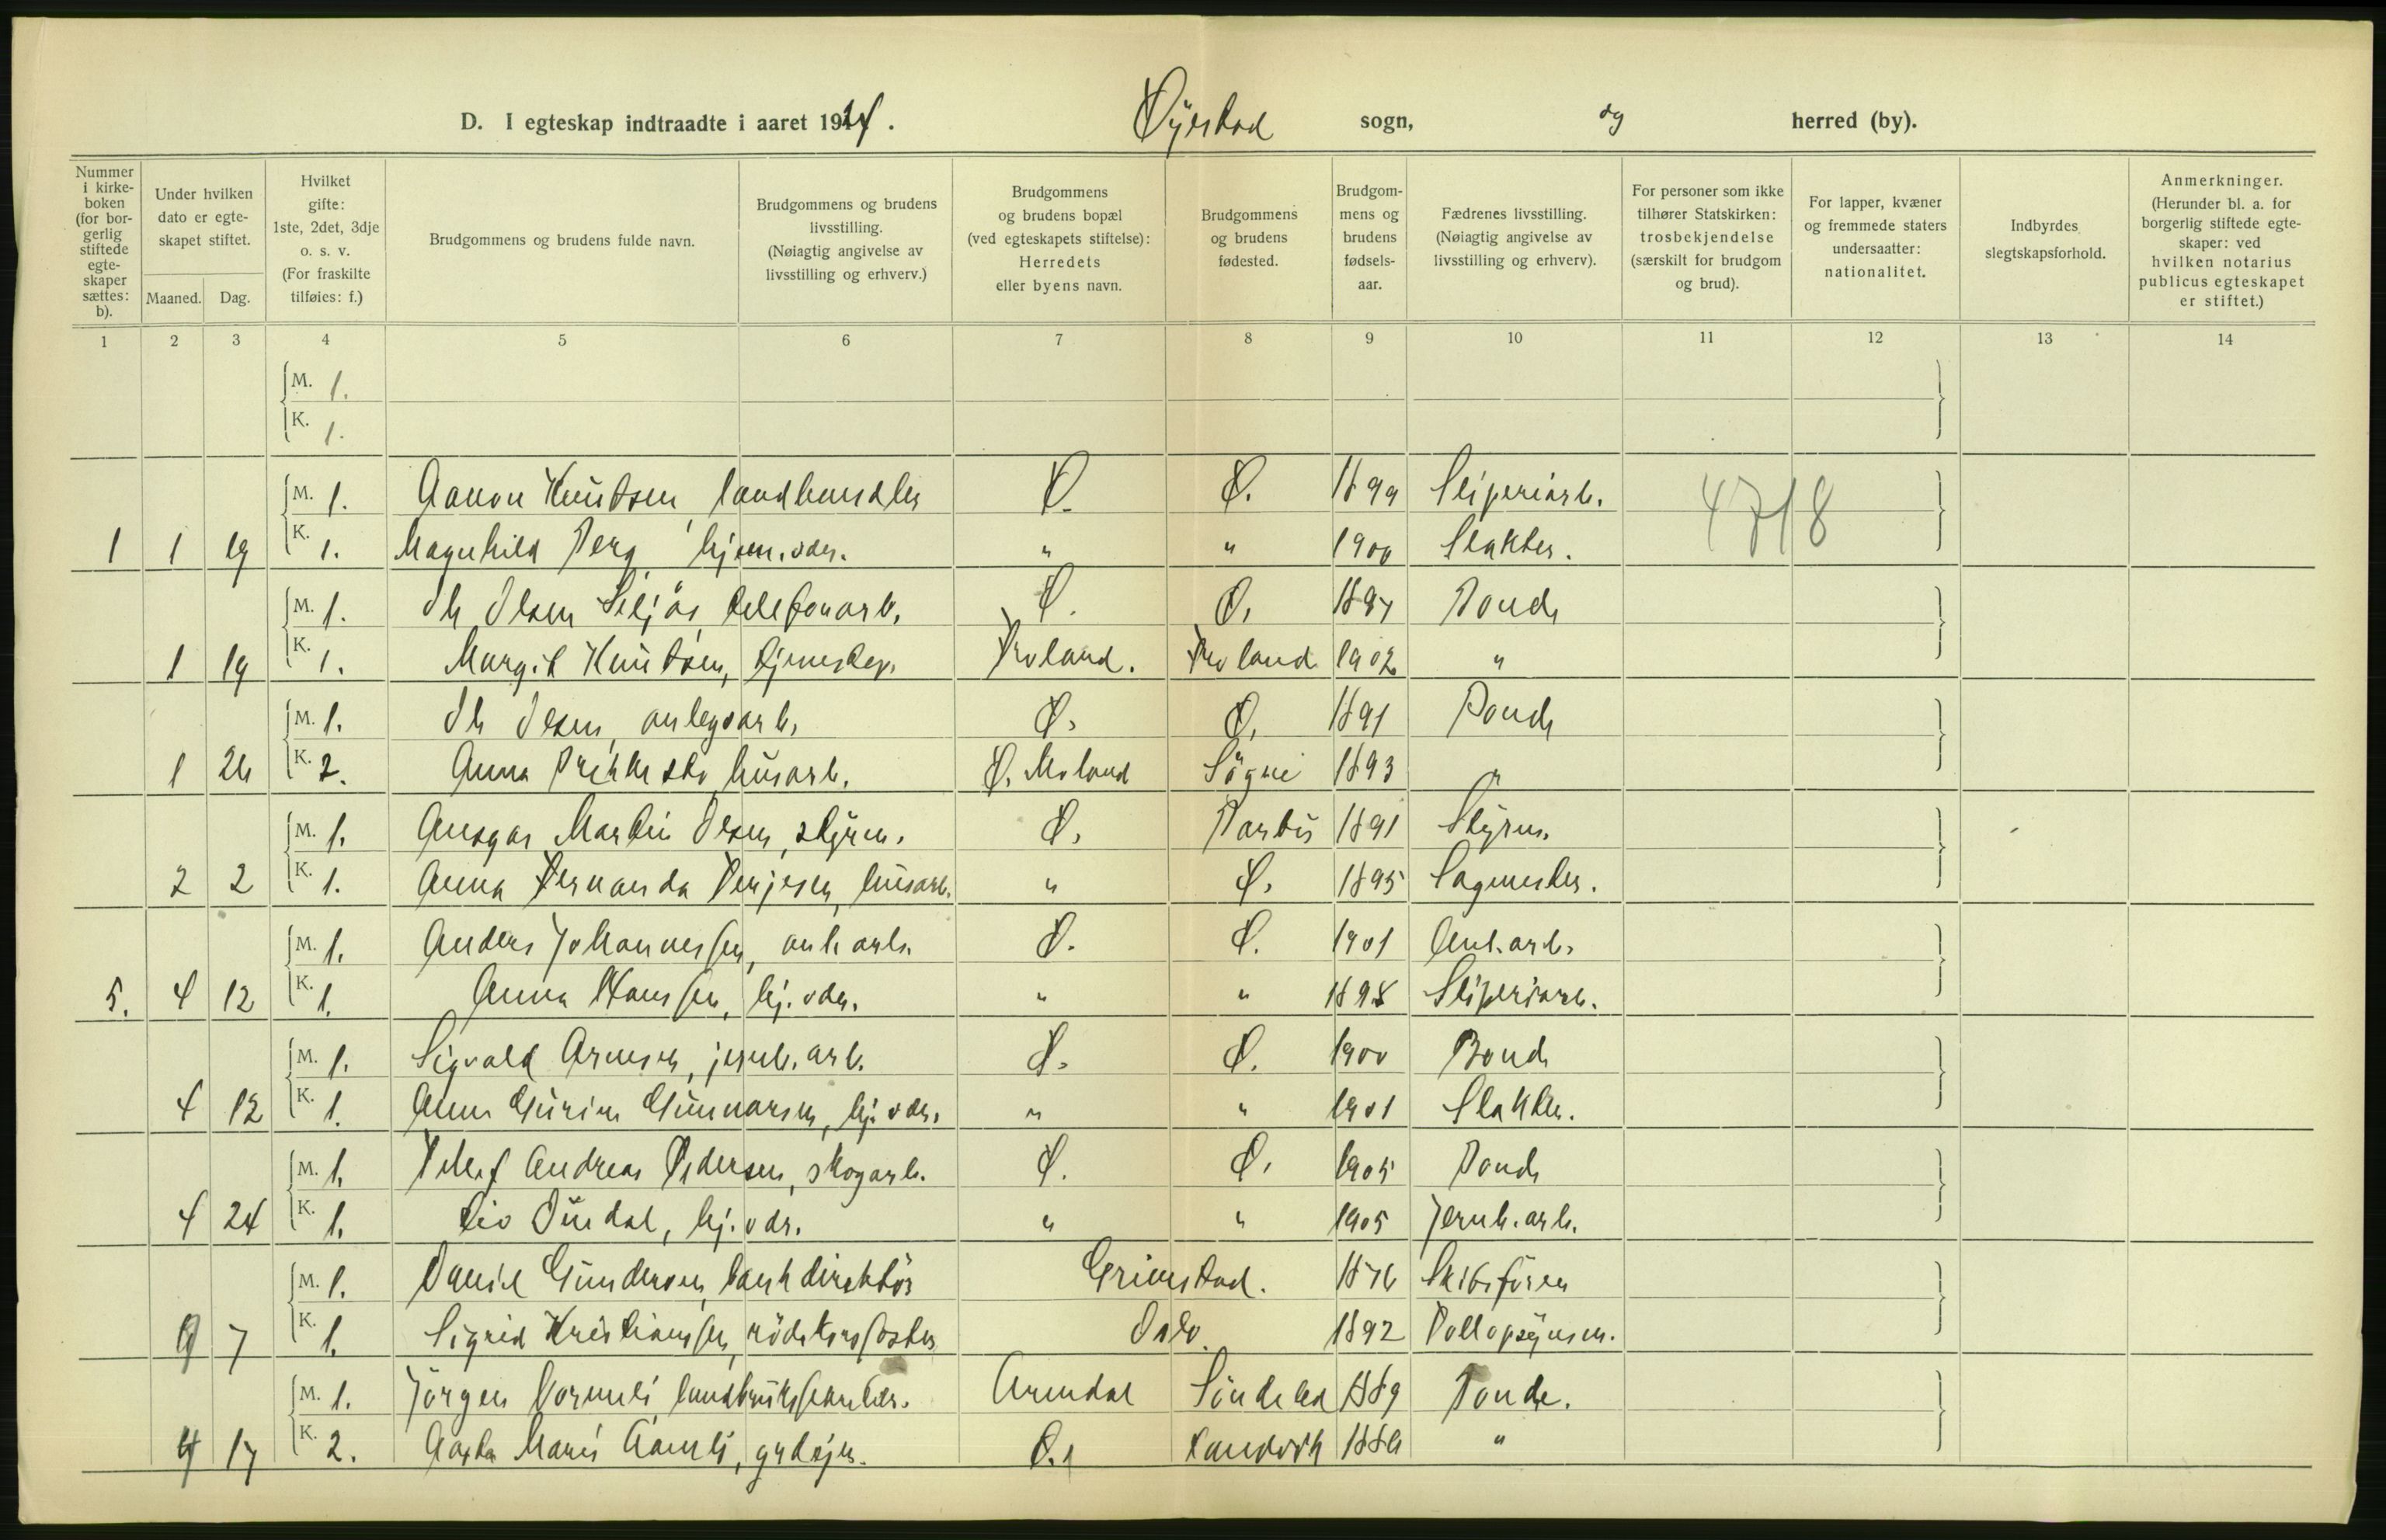 D. I egteskap indtraadte i aaret 1924. Øyestad sogn, og herred (by).
Nummer i kirkeboken (for borgerlig stiftede egteskaper sættes: b).
Under hvilken dato er egteskapet stiftet.
Maaned. Dag.
Hvilket gifte: 1ste, 2det, 3dje o. s. v. (For fraskilte tilføies: f.)
Brudgommens og brudens fulde navn.
Brudgommens og brudens livsstilling. (Nøiagtig angivelse av livsstilling og erhverv.)
Brudgommens og brudens bopæl (ved egteskapets stiftelse): Herredets eller byens navn.
Brudgommens og brudens fødested.
Brudgommens og brudens fødselsaar.
Fædrenes livsstilling. (Nøiagtig angivelse av livsstilling og erhverv).
For personer som ikke tilhører Statskirken: trosbekjendelse (særskilt for brudgom og brud).
For lapper, kvæner og fremmede staters undersaatter: nationalitet.
Indbyrdes slegtskapsforhold.
Anmerkninger. (Herunder bl. a. for borgerlig stiftede egteskaper: ved hvilken notarius publicus egteskapet er stiftet.)
1 2 3 4 5 6 7 8 9 10 11 12 13 14
M. 1.
K. 1.
M. 1. Aanon Knutsen, landhandler Ø. Ø. 1899 Sliperiarb. 4718
1 1 19 K. 1. Magnhild Berg, hjem.vær. " " 1900 Slakter.
M. 1. Olsen telefonarb. Ø. Ø. 1897 Bonde
1 19 K. 1. Margit Knutsen, tjenestep. Froland. Froland 1902 "
M. 1. Olsen, anlegsarb. Ø. Ø. 1891 Bonde
1 26 K. 2. Anna husarb. Ø. Moland Søgne 1893 "
M. 1. Ansgar Martin Olsen, styrm. Ø. Barbu 1891 Styrm.
2 2 K. 1. Anna Fernanda Terjesen, husarb. " Ø. 1895 Sagmester.
M. 1. Anders Johannessen, anl. arb. Ø. Ø. 1901 Anl. arb.
5. 4 12 K. 1. Anna Hanssen, hj. vær. " " 1898 Sliperiarb.
M. 1. Sigvald Arnesen, jernb. arb. Ø. Ø. 1900 Bonde
4 12 K. 1. Anne Gurine Gunnarsen, hj. vær. " " 1901 Slakter.
M. 1. Andreas Pedersen, skogarb. Ø. Ø. 1905 Bonde
4 24 K. 1. hj. vær. " " 1905 Jernb. arb.
M. 1. Daniel Gundersen, bankdirektör Grimstad. 1876 Skibsförer
9 7 K. 1. Sigrid Kristianssen, rödekorssöster Oslo 1892 Tollopsynsm.
M. 1. Jörgen Vormeli, landbrukskand. Arendal Söndeled 1889 Bonde.
4 17 K. 2. Marie Aamli, grdejer. Ø. Landvik 1886 "